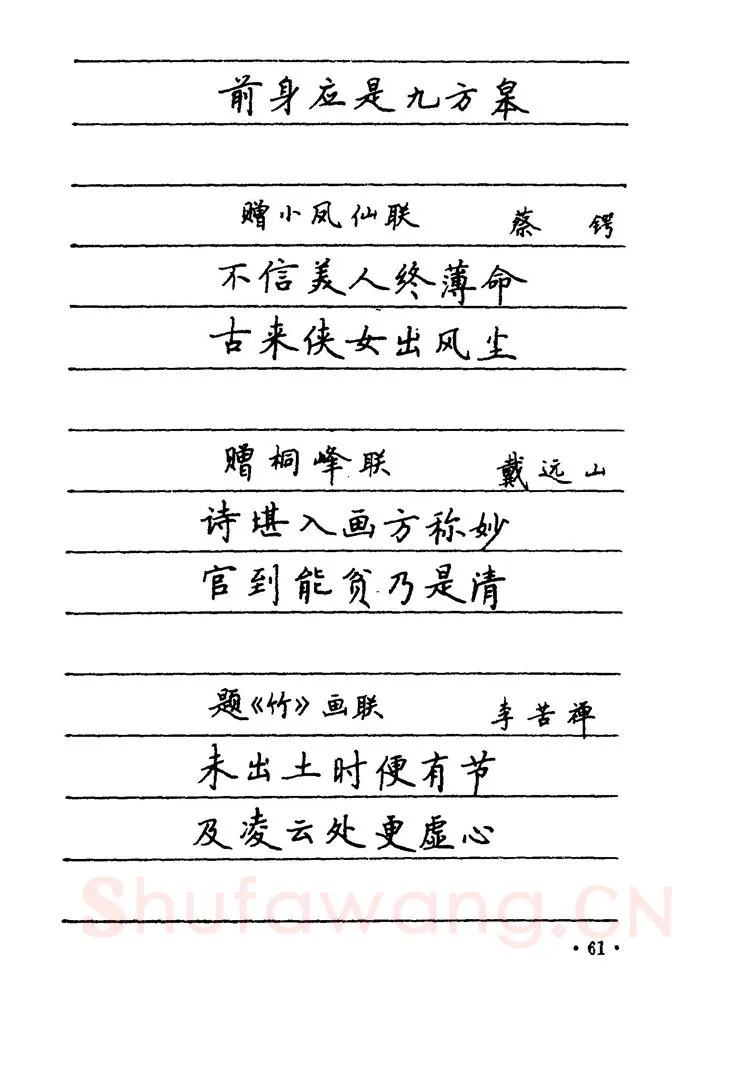 前身应是九方皋
赠小凤仙联 蔡锷
不信美人终薄命
古来侠女出风尘
赠桐峰联 戴远山
诗堪入画方称妙
官到能贫乃是清
题《竹》画联 李苦禅
未出土时便有节
及凌云处更虚心
Shufawang.CN
·61·